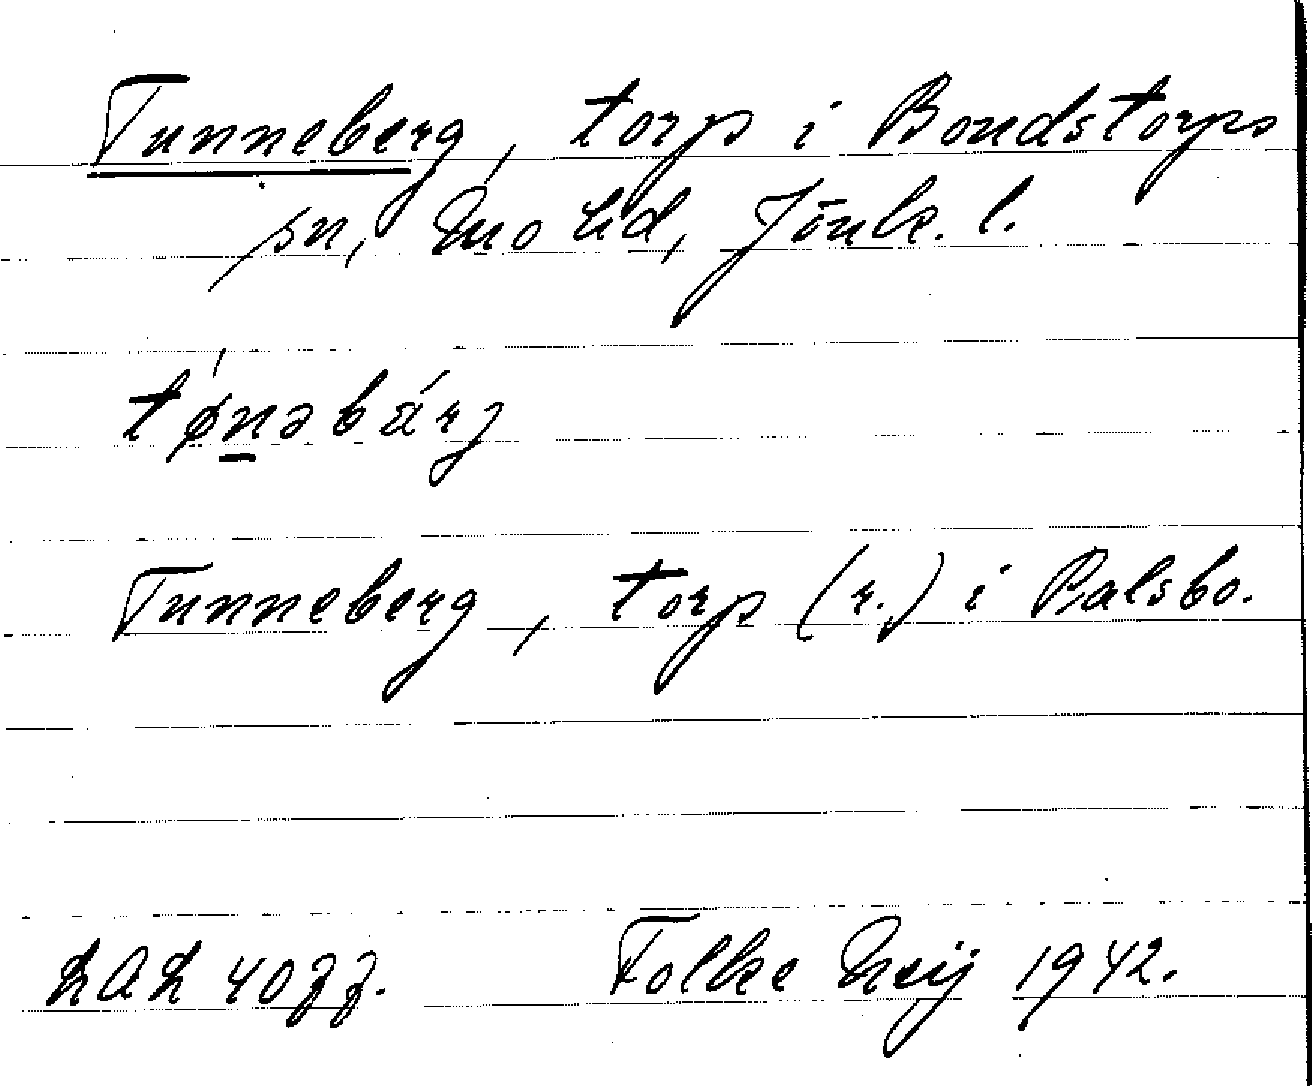 Tunneberg, torp i Bondstorps
sn, Mo hd, Jönk. l.
tǿnəbárj
Tunneberg, torp (r.) i Palsbo.
LAL 4077. Folke Neij 1942.